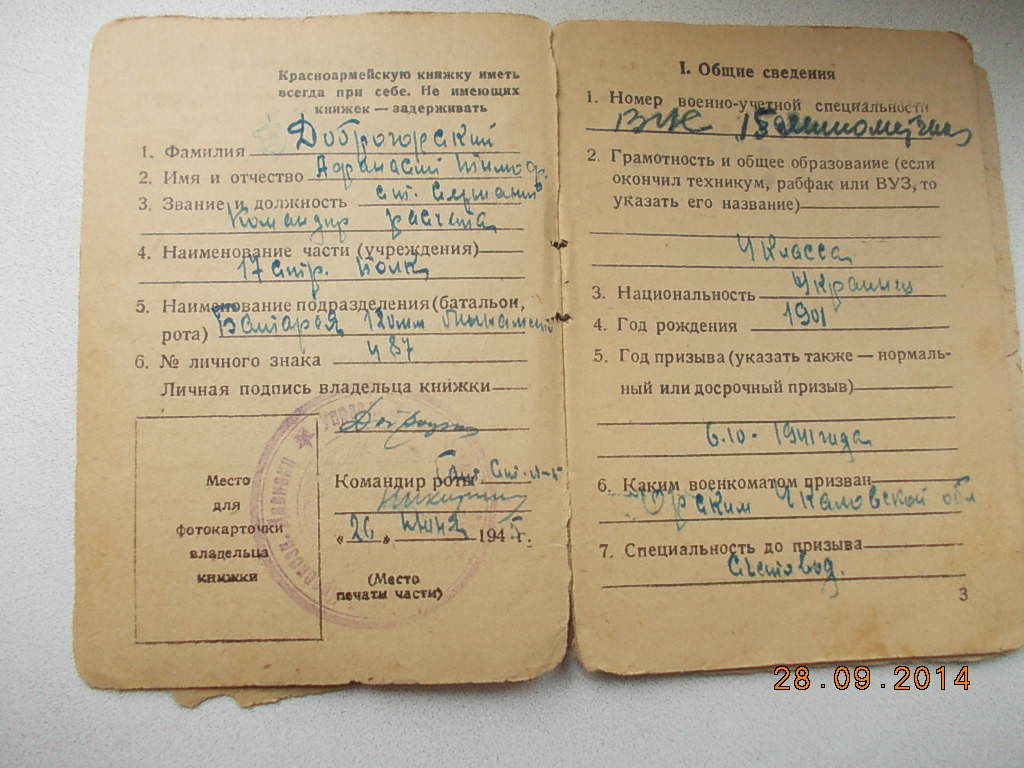 Красноармейскую книжку иметь
всегда при себе. Не имеющих
книжек — задерживать
1. Фамилия Доброгорский
2. Имя и отчество Афанасий Тимоф.
3. Звание и должность ст. Сержант
Командир расчета
4. Наименование части (учреждения)
17 стр. полк
5. Наименование подразделения (батальон,
рота) Батарея 120мм
6. № личного знака 487
Личная подпись владельца книжки
Командир роты
«26» июня 1945г.
Место
для
фотокарточки
владельца
книжки
(Место
печати части)
I. Общие сведения
1. Номер военно-учетной специальности
2. Грамотность и общее образование (если
окончил техникум, рабфак или ВУЗ, то
указать его название)
4 класса
3. Национальность Украинец
4. Год рождения 1901
5. Год призыва (указать также — нормаль-
ный или досрочный призыв)
6.10 - 1941 года
6. Каким военкоматом призван
Орским Чкаловской обл
7. Специальность до призыва
Счетовод.
3
28.09.2014